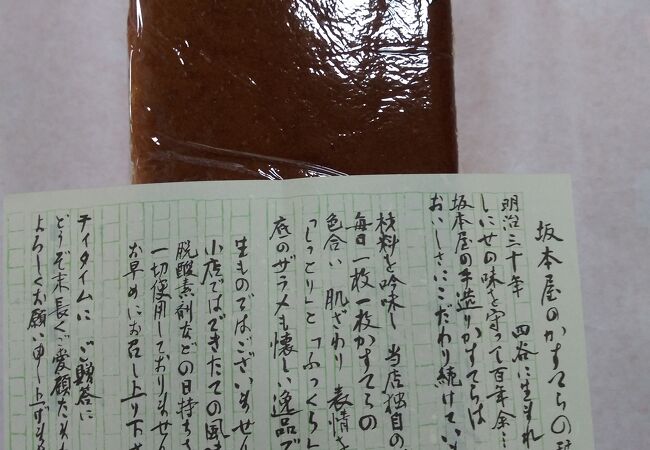 坂本屋のかすてらの
明治三十年 四谷に生まれ
しにせの味を守って百年余
坂本屋の手造りかすてらは
おいしさにこだわり続けてい
材料を吟味し 当店独自の
毎日一枚一枚かすてらの
色合い 肌ざわり 表情を
「しっとり」と「ふっくら」
底のザラメも懐しい逸品で
生ものではございません
小店ではできたての風味
脱酸素剤などの日持ち
一切使用しておりません
お早めにお召し上り下さ
ティタイムに ご贈答に
どうぞ末長くご愛顧
よろしくお願い申し上げます